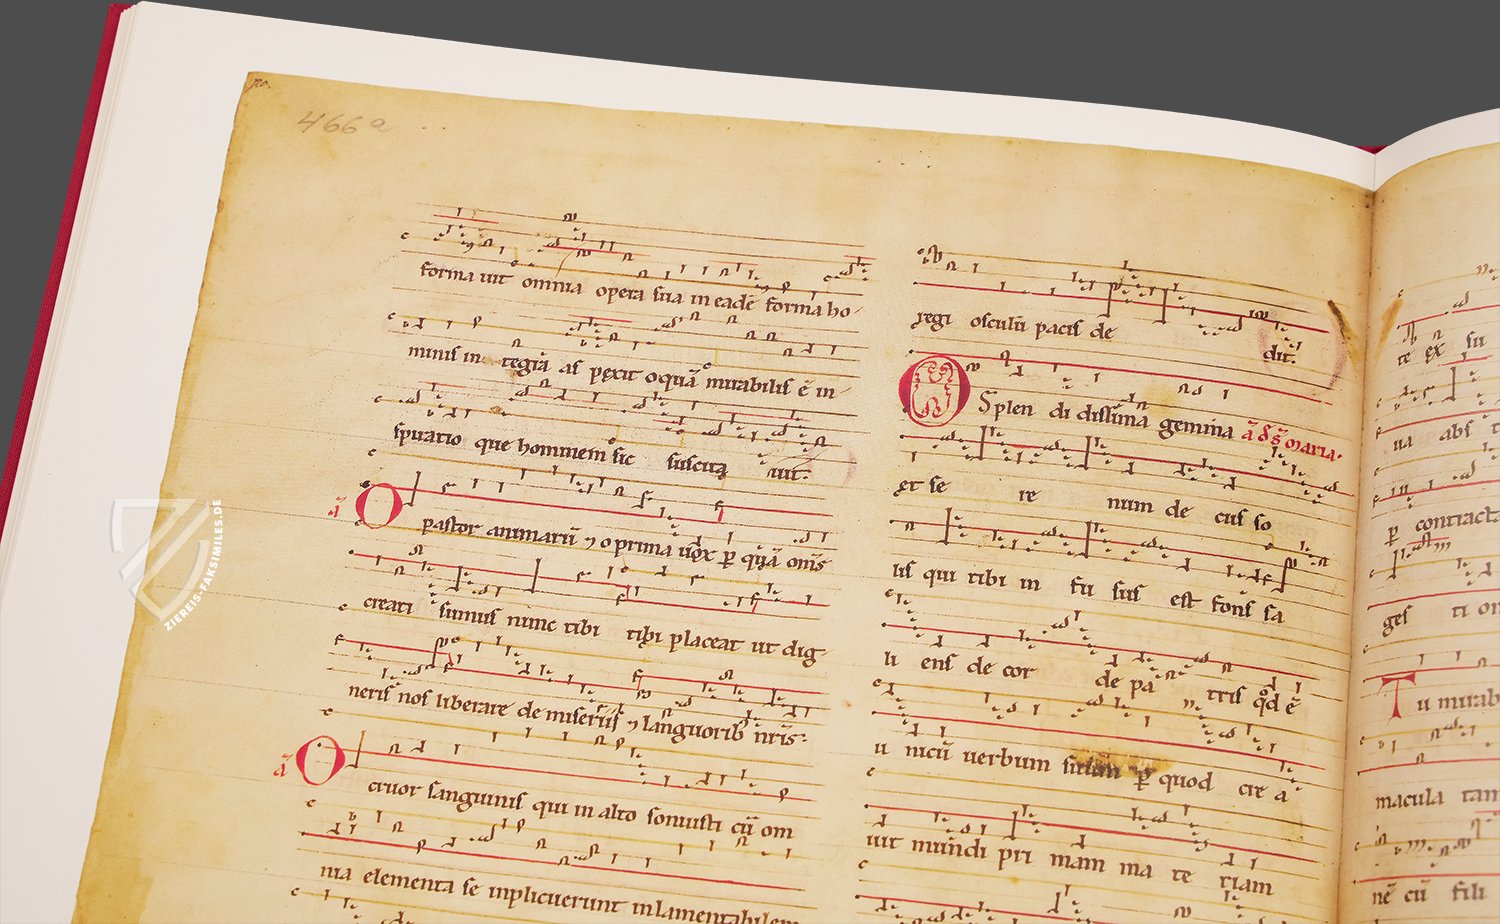 466a
forma uit omnia opera sua in eadē forma ho-
minis in tegrā as pexit o quā mirabilis ē in-
spiratio que hominem sic suscita uit.
ā O pastor animarū ⁊ o prima uox p̄ quā om̄s
creati sumus nunc tibi tibi placeat ut dig-
neris nos liberare de miseriis ⁊ languorib nr̄is:
ā O cruor sanguinis qui in alto sonuisti cū om
nia elementa se inplicuerunt in lamentabilem
regi osculū pacis de dit.
O Splen di dissima gemma ā d s̄ maria.
et se re num de cus so
lis qui tibi in fu sus est fons sa
li ens de cor de pa tris qd̊ ē
u nicū uerbum suum p̄ quod cre a
uit mundi pri mam ma te riam
te ex su
ua abs t
p̄ contracta
ges ti on
T u mirab
macula tam
nē cū fili
ZIEREIS-FAKSIMILES.DE